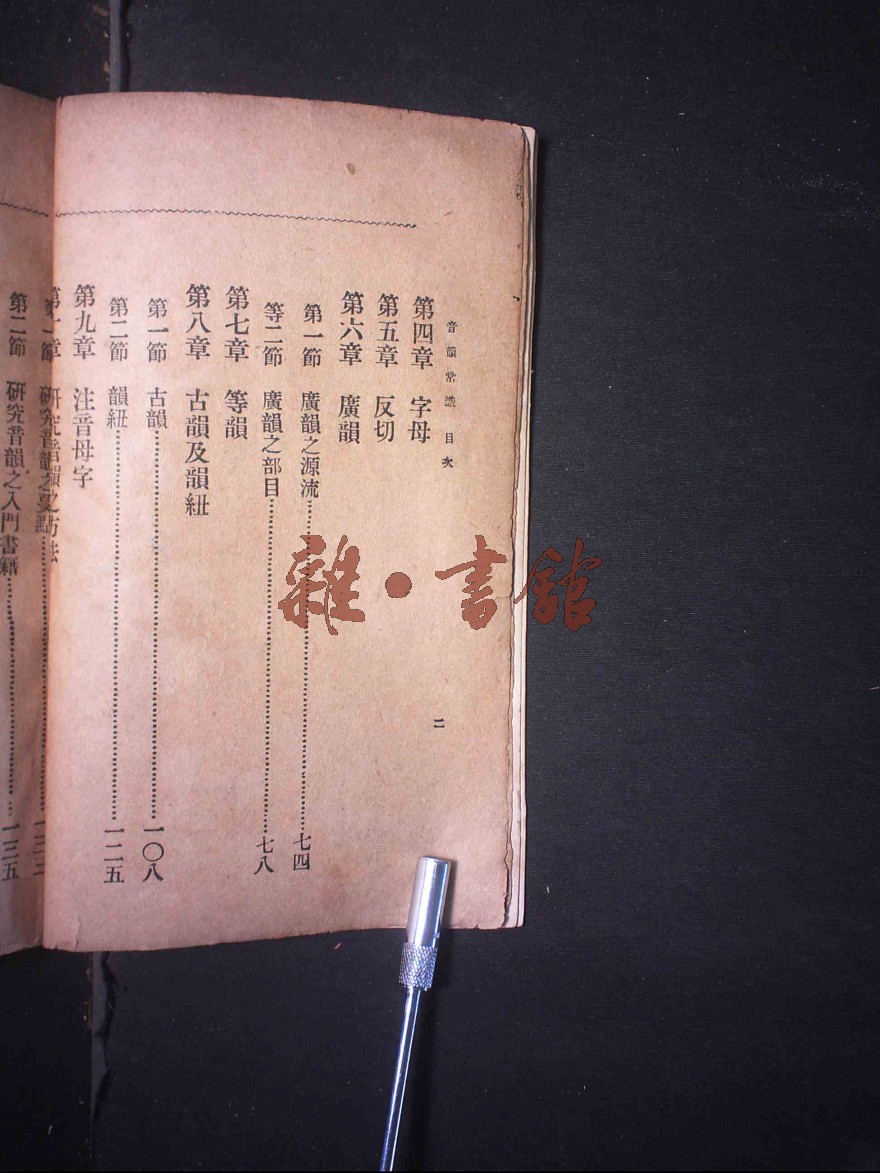 音韻常識 目次
二
第四章 字母
第五章 反切
第六章 廣韻
第一節 廣韻之源流 七四
等二節 廣韻之部目 七八
第七章 等韻
第八章 古韻及韻紐
第一節 古韻 一〇八
第二節 韻紐 一二五
第九章 注音母字
第十章 研究音韻之方法
第一節 研究音韻之要點 一三三
第二節 研究音韻之入門書籍 一三五
雜·書館